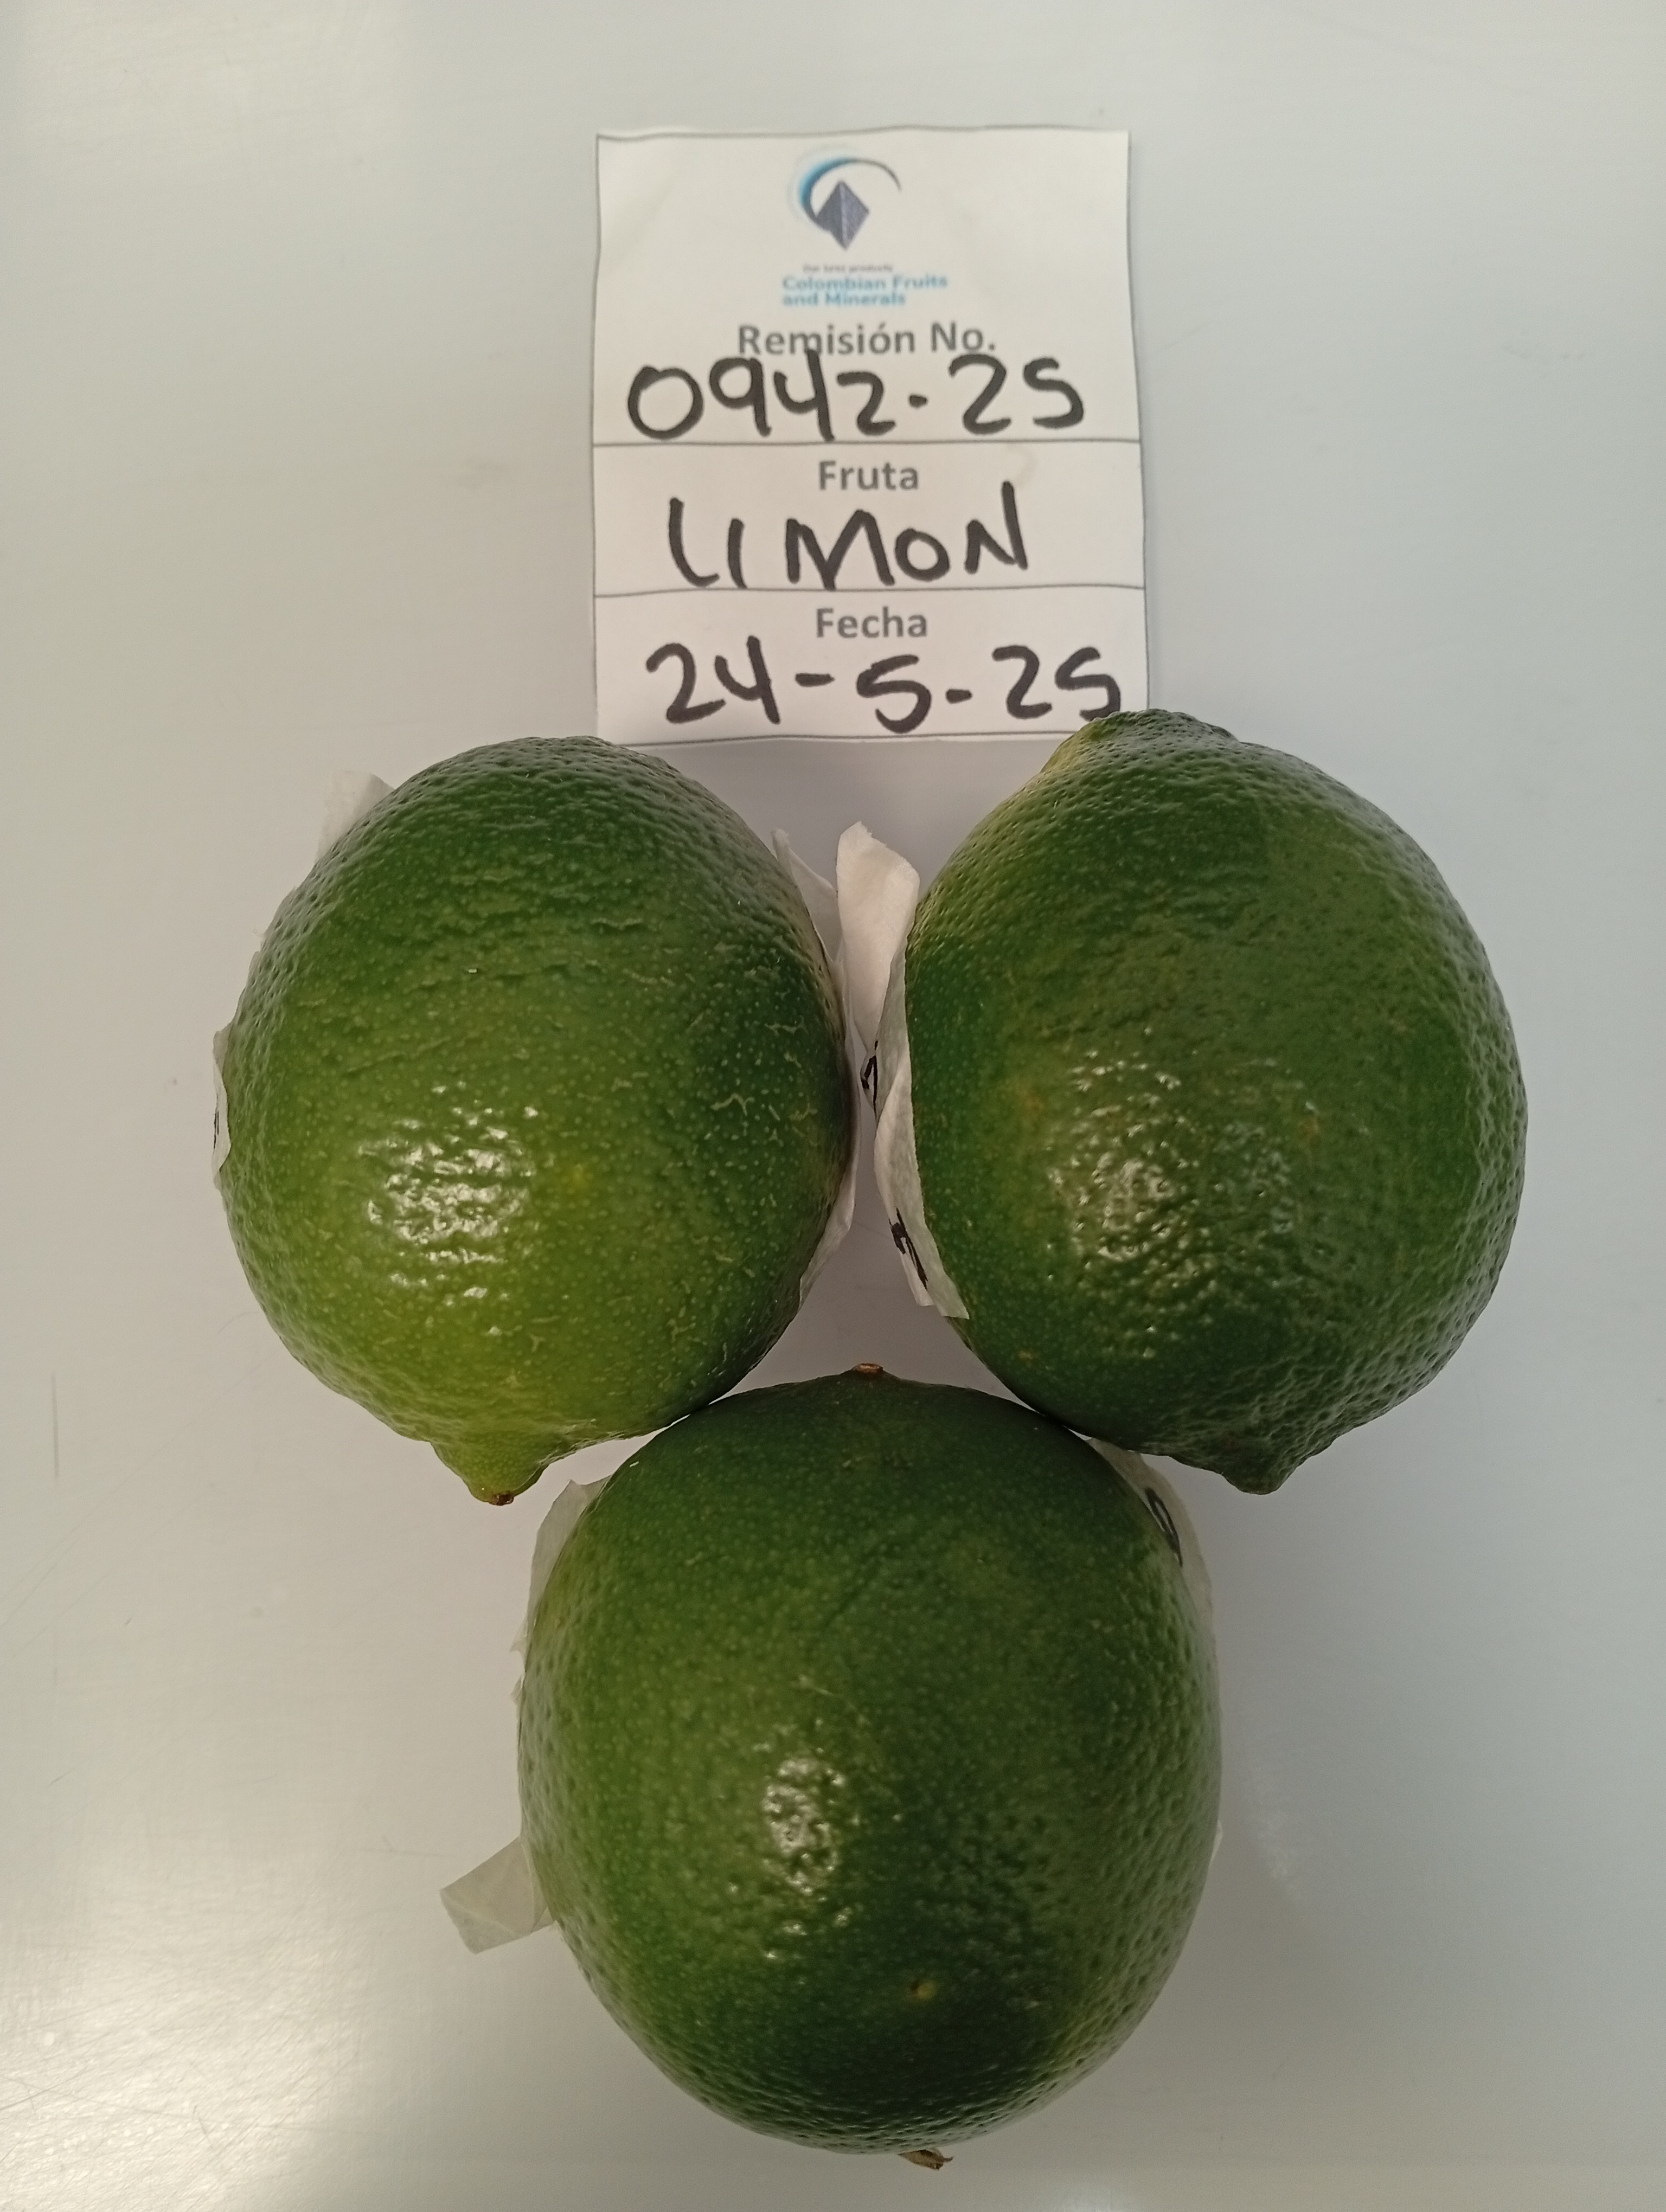 Our best products
Colombian Fruits
and Minerals
Remisión No.
0942-25
Fruta
LIMON
Fecha
24-5-25